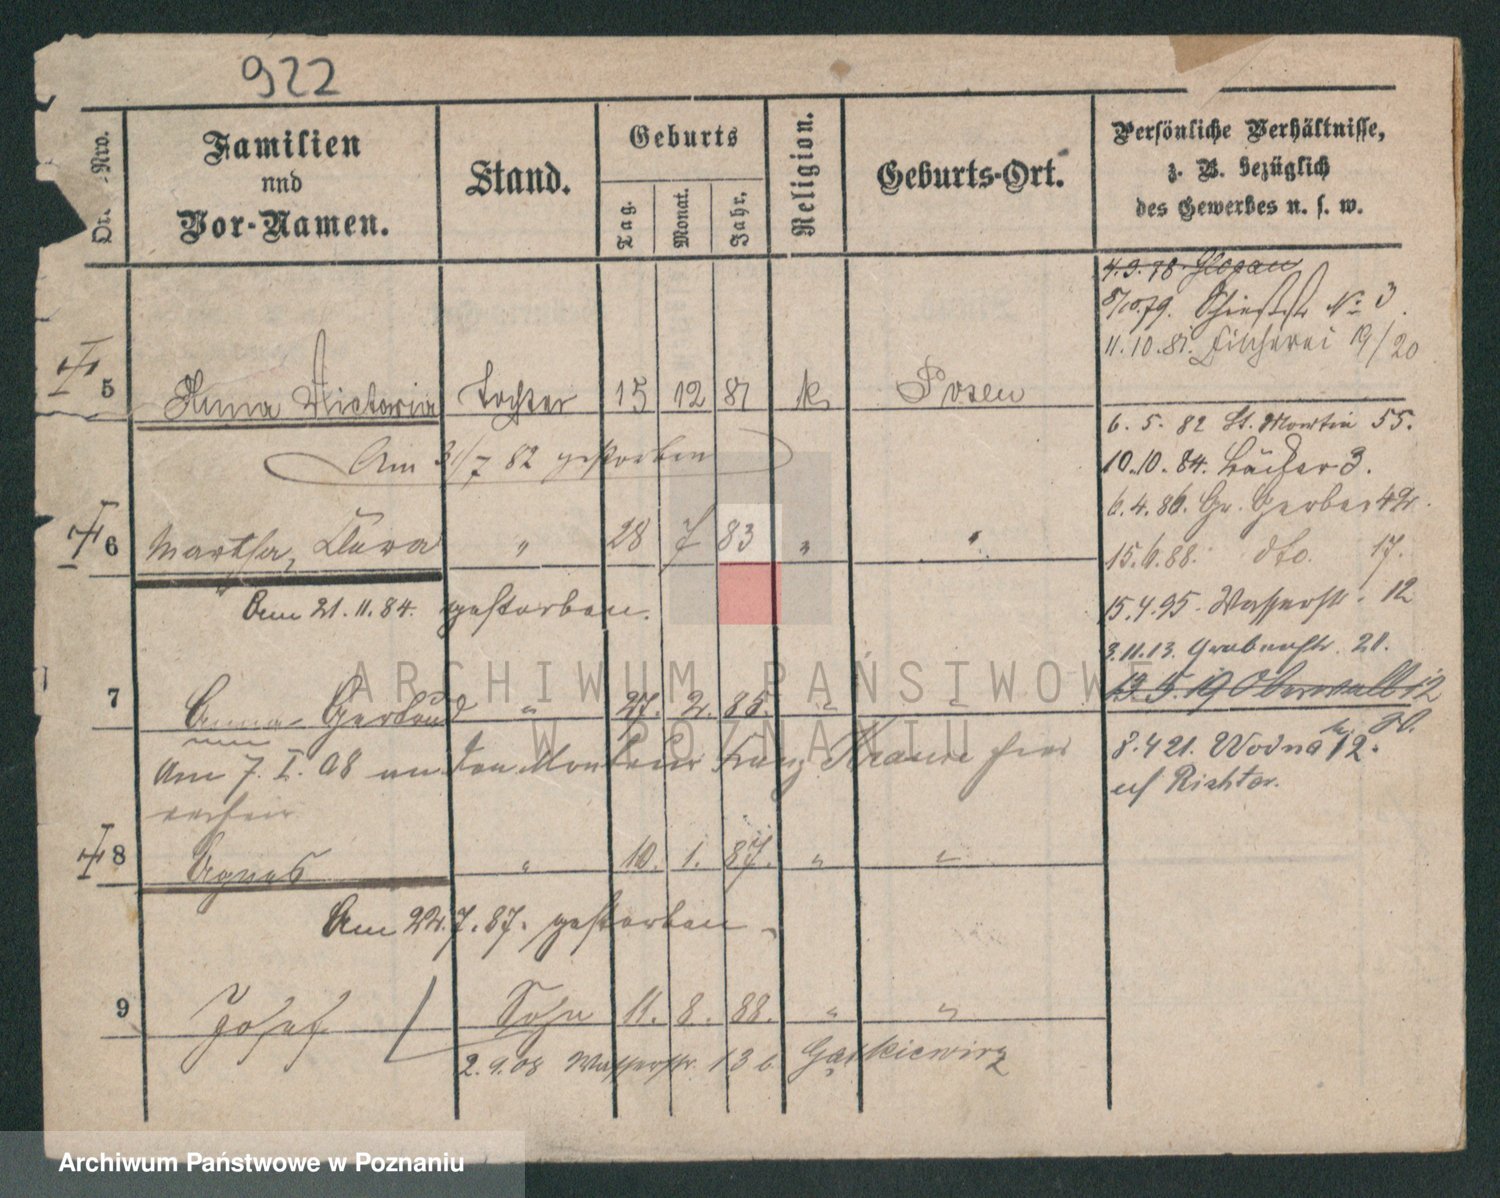 922
Or. Nro.
Familien
und
Vor-Namen.
Stand.
Geburts
Tag.
Monat.
Jahr.
Religion.
Geburts-Ort.
Persönliche Verhältnisse,
z. B. bezüglich
des Gewerbes u. s. w.
4.9.78. Glogau
8/10.79. No 3.
11.10.81. Fischerei 19/20
5 Anna Victoria Tochter 15 12 81 k Posen
Am 31/7 82 gestorben
6. 5. 82 St. Martin 55.
10.10.84. Bäcker 3.
6.4.86. Gr. Gerber 42.
15.6.88. dto. 17.
15.4.95. Wasserstr. 12
3.11.13. Grabenstr. 21.
13.5.19 Oberwall 12
8.4 21. Wodna 12.
Richter.
6 Martha, Clara " 28 7 83 " "
Am 21.11.84. gestorben.
7 Anna Gertrud " 27. 2. 85. " "
Am 7. I. 08 an den Monteur Franz Krause hier
8 Agnes " 10. 1. 87. " "
Am 22.7.87. gestorben.
9 Josef Sohn 11. 8. 88. " "
2.9.08 Wasserstr. 13 b
ARCHIWUM PAŃSTWOWE
W POZNANIU
Archiwum Państwowe w Poznaniu